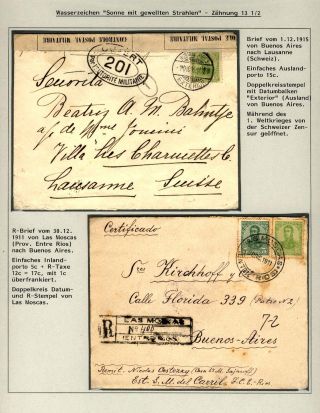 Wasserzeichen "Sonne mit gewellten Strahlen" - Zähnung 13 1/2
Brief vom 1.12.1915
von Buenos Aires
nach Lausanne
(Schweiz).
Einfaches Ausland-
porto 15c.
Doppelkreisstempel
mit Datumbalken
"Exterior" (Ausland)
von Buenos Aires.
Während des
1. Weltkrieges von
der Schweizer Zen-
sur geöffnet.
OUVERT
201
AUTORITÉ MILITAIRE
Señorita
Beatriz A. M.
a/c de Mme
Villa les Charmettes
Lausanne Suisse
R-Brief vom 30.12.
1911 von Las Moscas
(Prov. Entre Rios)
nach Buenos Aires.
Einfaches Inland-
porto 5c + R-Taxe
12c = 17c, mit 1c
überfrankiert.
Doppelkreis Datum-
und R-Stempel von
Las Moscas.
Certificado
Kirchhoff y
Calle Florida 339
7-2
Buenos-Aires
R
LAS MOSCAS
No 400
(ENTRE RIOS)
Remit. Nicolas
Est. S. M. del Carril